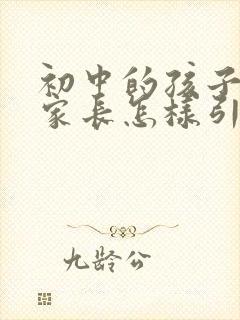 初中的孩子
家长怎样引
九龄公